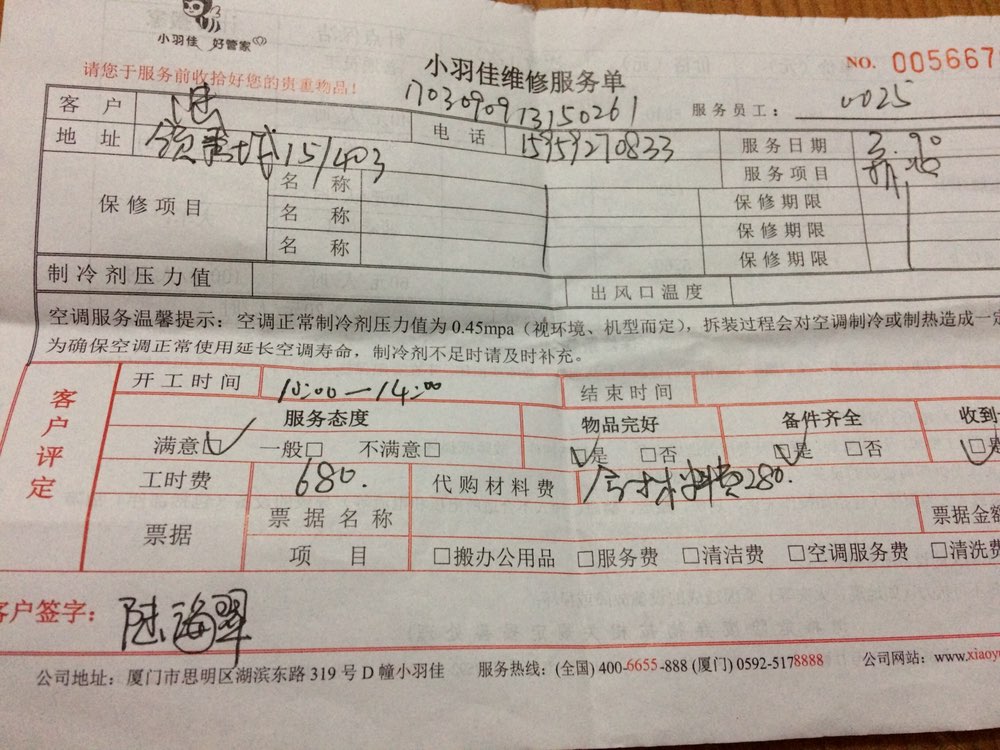 小羽佳 好管家
请您于服务前收拾好您的贵重物品！
小羽佳维修服务单
NO. 005667
1703090913150261
服务员工： 0025
客 户
电 话 15959270833
服务日期 3.90
地 址 领秀城15/403
服务项目
保修项目
名 称
保修期限
名 称
保修期限
名 称
保修期限
制冷剂压力值
出风口温度
空调服务温馨提示：空调正常制冷剂压力值为0.45mpa（视环境、机型而定），拆装过程会对空调制冷或制热造成一定
为确保空调正常使用延长空调寿命，制冷剂不足时请及时补充。
客户评定
开工时间 10:00—14:00
结束时间
服务态度 物品完好 备件齐全 收到
满意☑ 一般□ 不满意□ ☑是 □否 ☑是 □否 ☑是
工时费 680. 代购材料费 含材料费280.
票据 票据名称 票据金额
项 目 □搬办公用品 □服务费 □清洁费 □空调服务费 □清洗费
客户签字： 陆海翠
公司地址：厦门市思明区湖滨东路319号D幢小羽佳 服务热线：(全国) 400-6655-888 (厦门) 0592-5178888 公司网站：www.xiaoyu